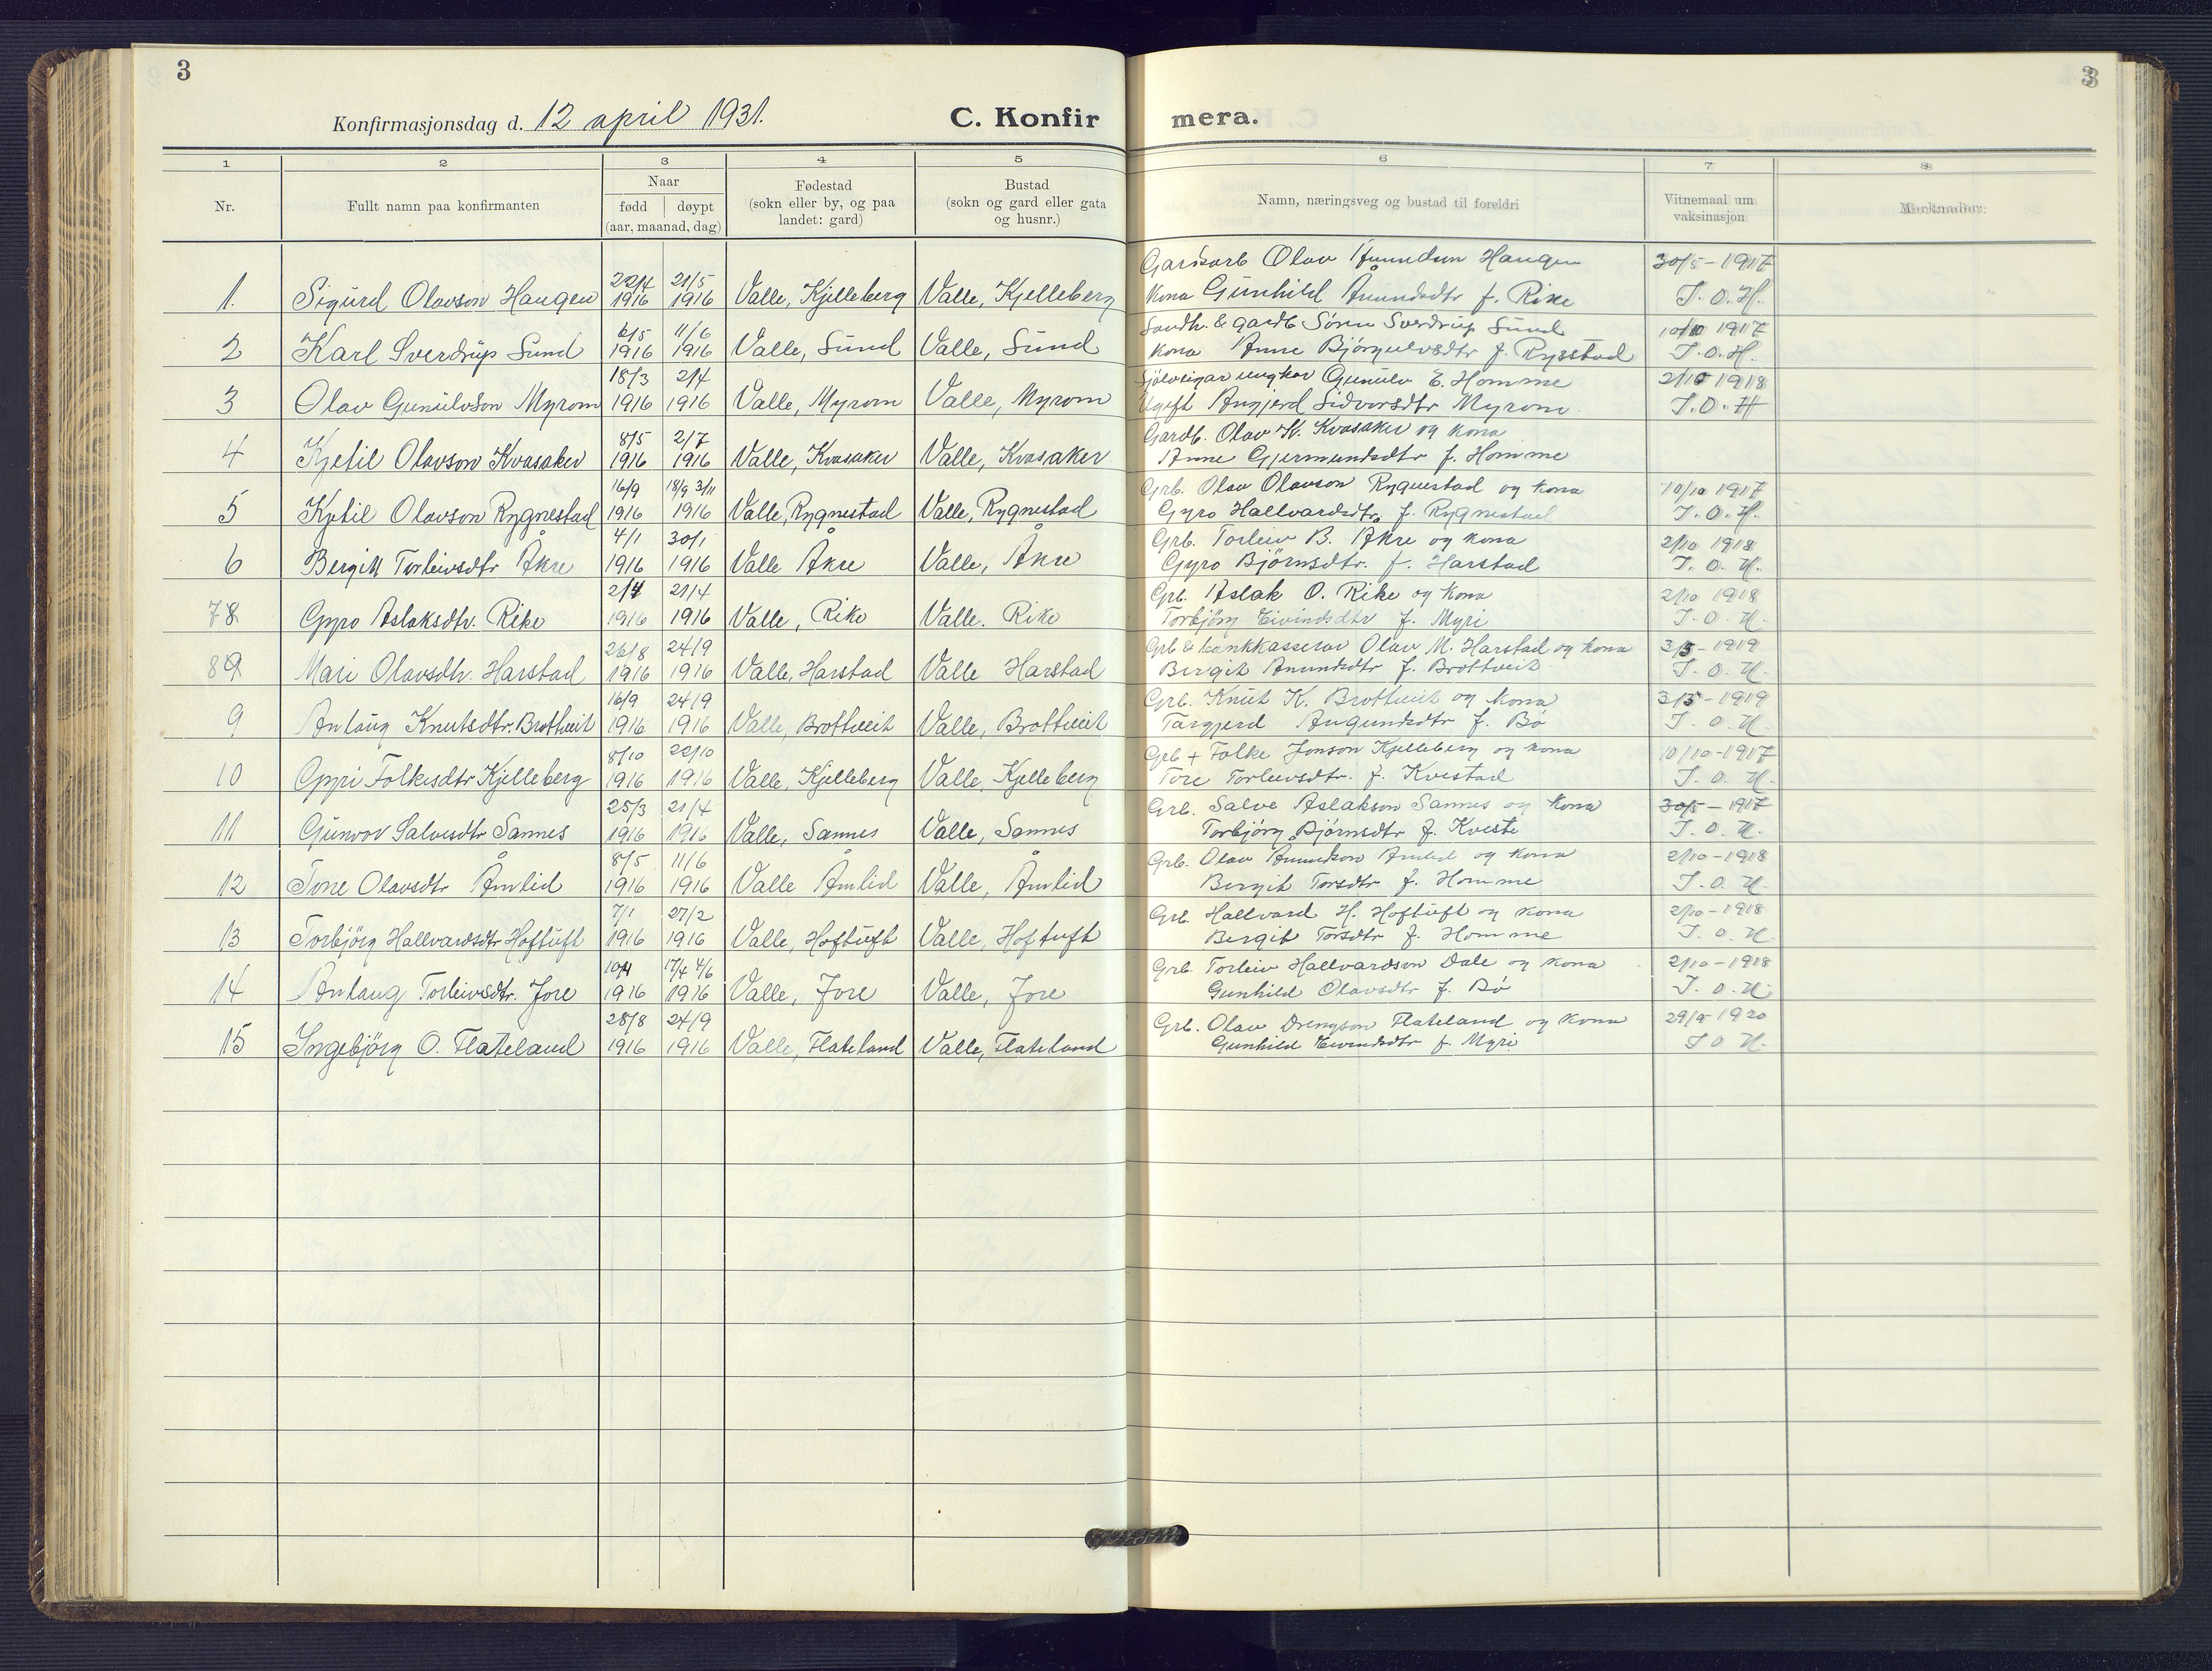 3
3
Konfirmasjonsdag d. 12 april 1931.
C. Konfir
mera.
1 2 3 4 5 6 7 8
Nr.
Fullt namn paa konfirmanten
Naar
fødd døypt
(aar, maanad, dag)
Fødestad
(sokn eller by, og paa
landet: gard)
Bustad
(sokn og gard eller gata
og husnr.)
Namn, næringsveg og bustad til foreldri
Vitnemaal um
vaksinasjon
Merknader.
22/4 21/5 Olav Haugen 30/5 - 1917
1. Sigurd Olavson Haugen 1916 1916 Valle, Kjelleberg Valle, Kjelleberg Kona Gunhild Åmundsdtr f. Rike J. O. H.
6/5 11/6 & gardb Søren Sverdrup Sund 10/10 1917
2 Karl Sverdrup Sund 1916 1916 Valle, Sund Valle, Sund Kona Anne Bjørgulvsdtr f. Rysstad J. O. H.
18/3 2/4 Sjølveigar ungkar Gunulv E. Homme 2/10 1918
3 Olav Gunulvson Myrom 1916 1916 Valle, Myrom Valle, Myrom Ugift Angjerd Sidvorsdtr Myrom J. O. H
8/5 2/7 Gardb. Olav K. Kvasaker og kona
4 Kjetil Olavson Kvasaker 1916 1916 Valle, Kvasaker Valle, Kvasaker Anne Gjermundsdtr f. Homme
16/9 18/9 3/11 Grb. Olav Olavson Rygnestad og kona 10/10 1917
5 Kjetil Olavson Rygnestad 1916 1916 Valle, Rygnestad Valle, Rygnestad Gyro Hallvardsdtr. f. Rygnestad J. O. H.
4/1 30/1 Grb. Torleiv B. Åkre og kona 2/10 1918
6 Bergitt Torleivsdtr Åkre 1916 1916 Valle Åkre Valle, Åkre Gyro Bjørnsdtr. f. Harstad J. O. H.
2/4 21/4 Grb. Aslak O. Rike og kona 2/10 1918
7 8 Gyro Aslaksdtr. Rike 1916 1916 Valle, Rike Valle. Rike Torbjørg Eivindsdtr f. Myri J. O. H.
26/8 24/9 Grb & bankkasserar Olav M. Harstad og kona 3/5 - 1919
8 9 Mari Olavsdtr. Harstad 1916 1916 Valle, Harstad Valle Harstad Bergit Åmundsdtr f. Brottveit J. O. H.
16/9 24/9 Grb. Knut K. Brottveit og kona 3/5 - 1919
9 Anlaug Knutsdtr. Brottveit 1916 1916 Valle, Brottveit Valle, Brottveit Targjerd Augundsdtr f. Bø J. O. H.
8/10 22/10 Grb + Folke Jonson Kjelleberg og kona 10/10 - 1917
10 Gyri Folkesdtr Kjelleberg 1916 1916 Valle, Kjelleberg Valle, Kjelleberg Tore Torleivsdtr. f. Kvestad J. O. H.
25/3 21/4 Grb. Salve Aslakson Sannes og kona 30/5 - 1917
11 Gunvor Salvesdtr Sannes 1916 1916 Valle, Sannes Valle, Sannes Torbjørg Bjørnsdtr f. Kveste J. O. H.
8/5 11/6 Grb. Olav Åmundson Åmlid og kona 2/10 - 1918
12 Tone Olavsdtr Åmlid 1916 1916 Valle Åmlid Valle, Åmlid Bergit Torsdtr f. Homme J. O. H.
7/1 27/2 Grb. Hallvard H. Hoftuft og kona 2/10 - 1918
13 Torbjörg Hallvardsdtr Hoftuft 1916 1916 Valle, Hoftuft Valle, Hoftuft Bergit Torsdtr f. Homme J. O. H.
10/4 17/4 4/6 Grb. Torleiv Hallvardson Dale og kona 2/10 - 1918
14 Anlaug Torleivsdtr. Jore 1916 1916 Valle, Jore Valle, Jore Gunhild Olavsdtr f. Bø J. O. H.
28/8 24/9 Grb. Olav Drengson Flateland og kona 1920
15 Ingebjörg O. Flateland 1916 1916 Valle, Flateland Valle, Flateland Gunhild Eivindsdtr f. Myri J O H.